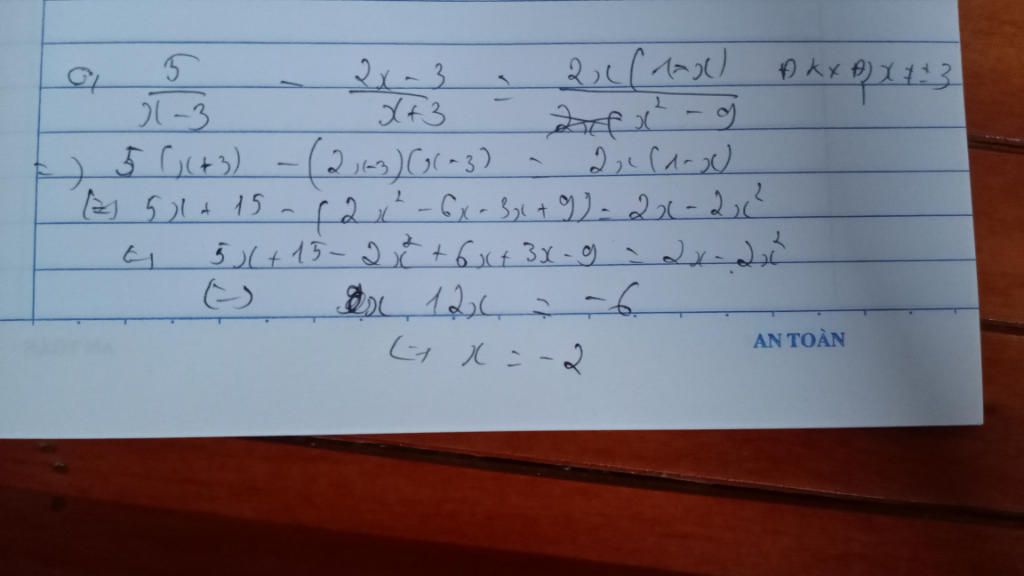 c, 5/(x-3) - (2x-3)/(x+3) = 2x(1-x)/(x² - 9) ĐKXĐ x ≠ ±3
=) 5(x+3) - (2x-3)(x-3) = 2x(1-x)
(=) 5x + 15 - (2x² - 6x - 3x + 9) = 2x - 2x²
(=) 5x + 15 - 2x² + 6x + 3x - 9 = 2x - 2x²
(=) 12x = -6
AN TOÀN
(=) x = -2